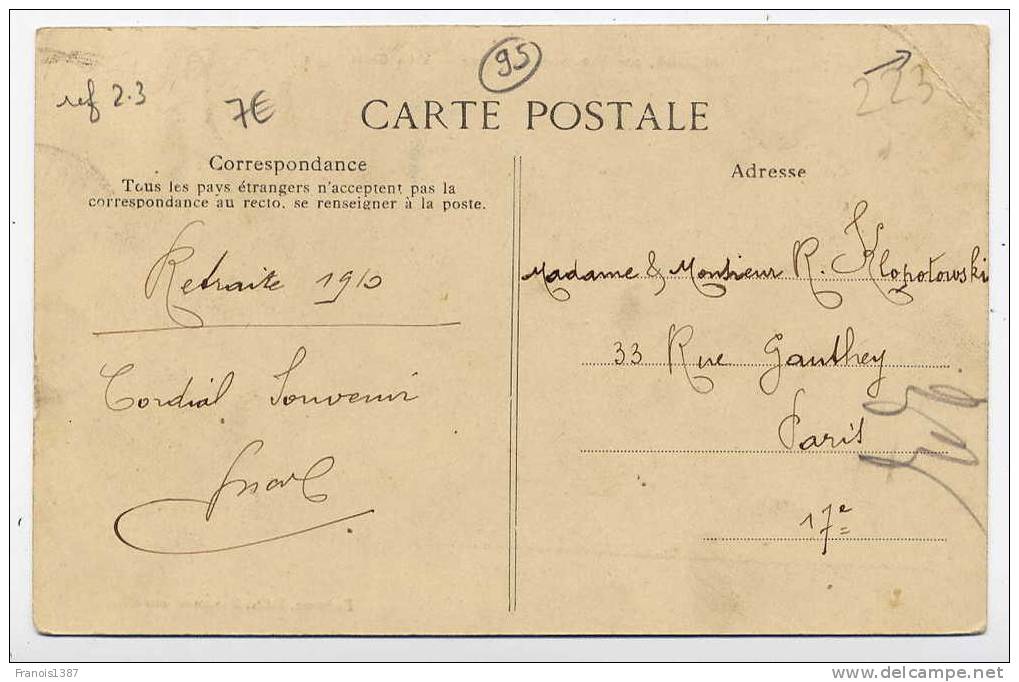 95
ref 2.3
7€
223
CARTE POSTALE
Correspondance
Tous les pays étrangers n'acceptent pas la
correspondance au recto. se renseigner à la poste.
Retraite 1910
Cordial Souvenir
Adresse
Madame & Monsieur R. Klopotowski
33 Rue Gauthey
Paris
17e
Franois1387
www.delcampe.net